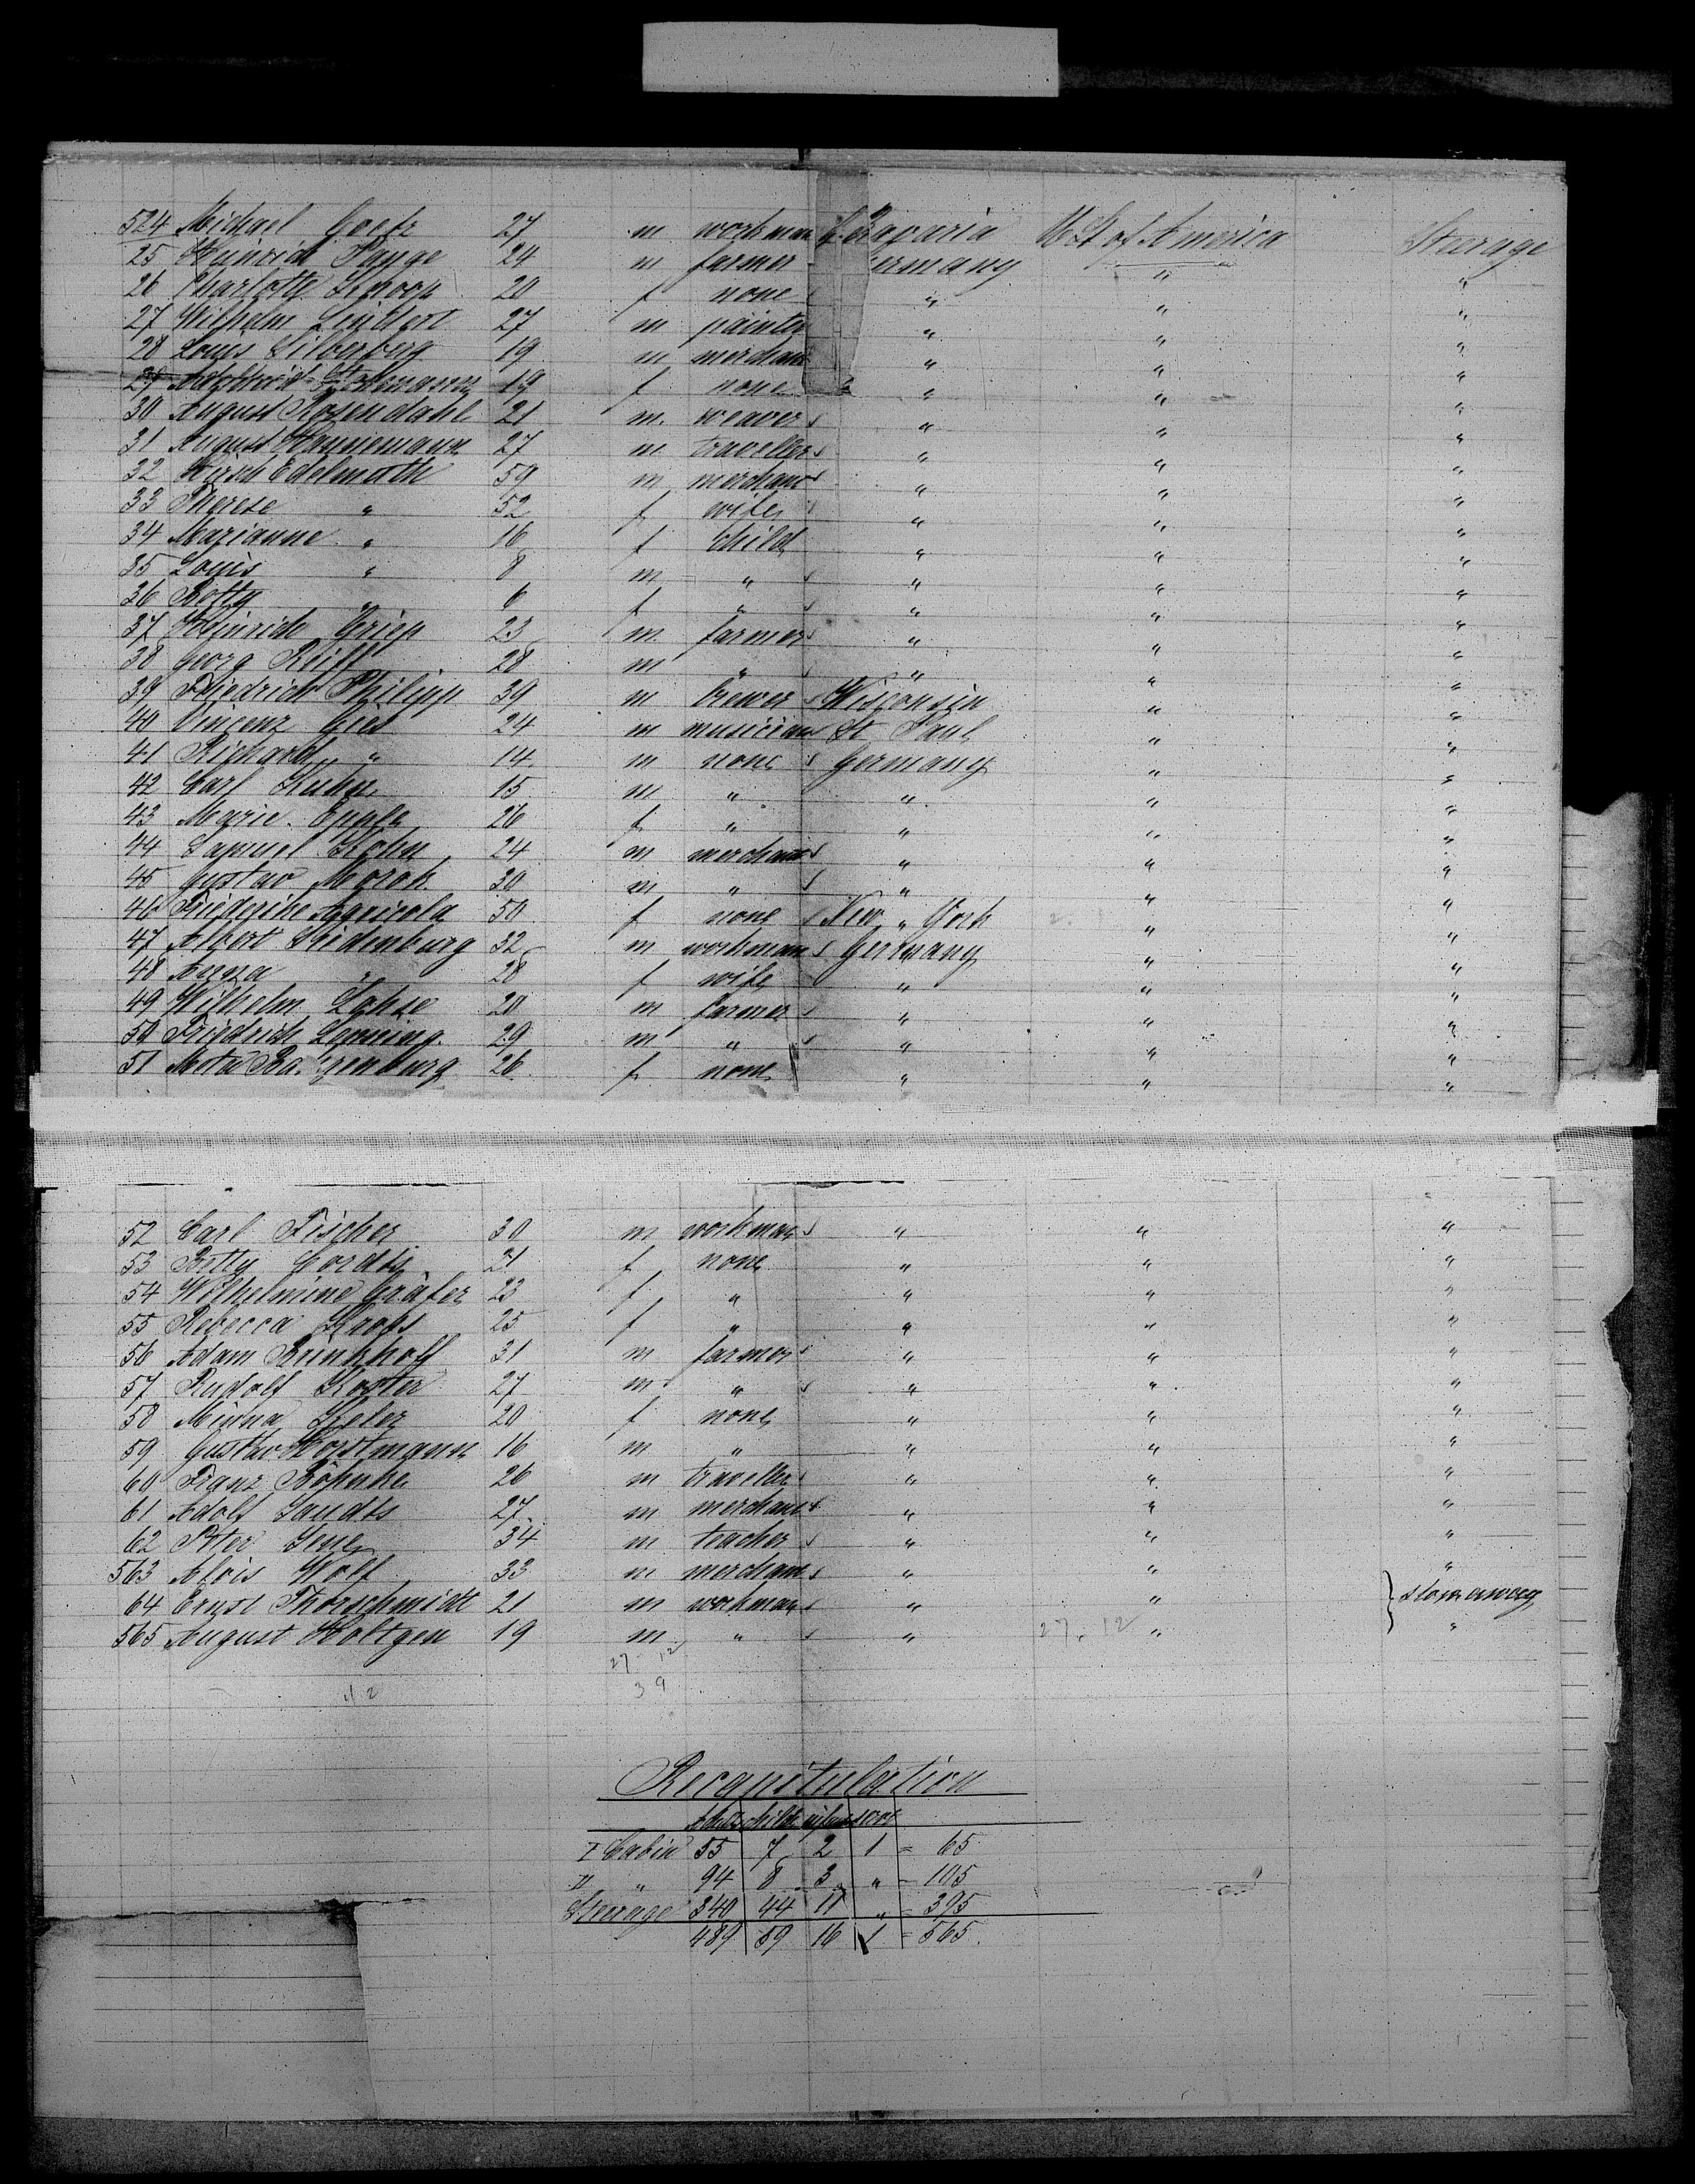 524 Michael Goetz 27 m workman Bavaria U S of America Steerage
25 Heinrich Runge 24 m farmer ermany " "
26 Charlotte Knoop 20 f none " " "
27 Wilhelm Lindert 27 m painter " " "
28 Louis Silberberg 19 m merchant " " "
29 19 f none " " "
30 August Rosendahl 21 m. weaver " " "
31 August Hannemann 27 m traveller " " "
32 Hirsch Edelmuth 59 m merchant " " "
33 Therese " 52 f wife " " "
34 Marianne " 16 f child " " "
35 Louis " 8 m " " " "
36 Betty " 6 f " " " "
37 Heinrich Griep 23 m farmer " " "
38 Georg Reiff 28 m " " " "
39 Friedrich Philipp 39 m brewer Wisconsin " "
40 Vincenz Gies 24 m musician St Paul " "
41 Richard " 14 m none Germany " "
42 Carl Kuhn 15 m " " " "
43 Marie Epple 26 f " " " "
44 Samuel Kohn 24 m merchant " " "
45 Gustav Marok 30 m " " " "
46 Friederike Agricola 50 f none New York " "
47 Albert Siedenburg 32 m workman Germany " "
48 Anna " 28 f wife " " "
49 Wilhelm Lohse 20 m farmer " " "
50 Friedrich Lenning 29 m " " " "
51 Meta 26 f none " " "
52 Carl Fischer 30 m workman " " "
53 Betty Cordts 21 f none " " "
54 Wilhelmine Gräfer 23 f " " " "
55 Rebecca 25 f " " " "
56 Adam Runkholf 31 m farmer " " "
57 Rudolf Koster 27 m " " " "
58 Minna Keler 20 f none " " "
59 Gustav Horstmann 16 m " " " "
60 Franz Böhnke 26 m traveller " " "
61 Adolf Landts 27 m merchant " " "
62 Peter Lene 34 m teacher " " "
563 Alois Wolf 33 m merchant " " "
64 Ernst Thorschmidt 21 m workman " " stowaway
565 August Holtgen 19 m " " 27. 12 " "
27 12
39
Recapitulation
Adults childr infants
I Cabin 55 7 2 1 = 65
II " 94 8 3 " = 105
Steerage 340 44 11 " = 395
489 59 16 1 = 565.